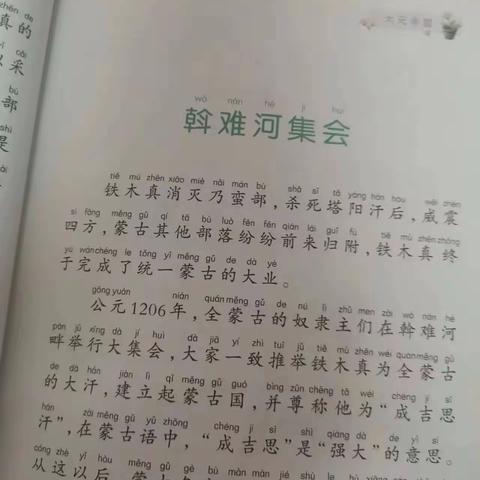 大元帝国
wò nán hé jí huì
斡难河集会
tiě mù zhēn xiāo miè nǎi mán bù shā sǐ tǎ yáng hán hòu wēi zhèn
铁木真消灭乃蛮部，杀死塔阳汗后，威震
sì fāng měng gǔ qí tā bù luò fēn fēn qián lái guī fù tiě mù zhēn zhōng
四方，蒙古其他部落纷纷前来归附，铁木真终
yú wán chéng le tǒng yī měng gǔ de dà yè
于完成了统一蒙古的大业。
gōng yuán nián quán měng gǔ de nú lì zhǔ men zài wò nán hé
公元1206年，全蒙古的奴隶主们在斡难河
pàn jǔ xíng dà jí huì dà jiā yí zhì tuī jǔ tiě mù zhēn wéi quán měng gǔ
畔举行大集会，大家一致推举铁木真为全蒙古
de dà hán jiàn lì qǐ měng gǔ guó bìng zūn chēng tā wéi chéng jí sī
的大汗，建立起蒙古国，并尊称他为“成吉思
hán zài měng gǔ yǔ zhōng chéng jí sī shì qiáng dà de yì si
汗”，在蒙古语中，“成吉思”是“强大”的意思。
cóng zhè yǐ hòu měng gǔ
从这以后，蒙古
zhēn de
真的
yǐ cǎi
以采
bù
部
shì
是